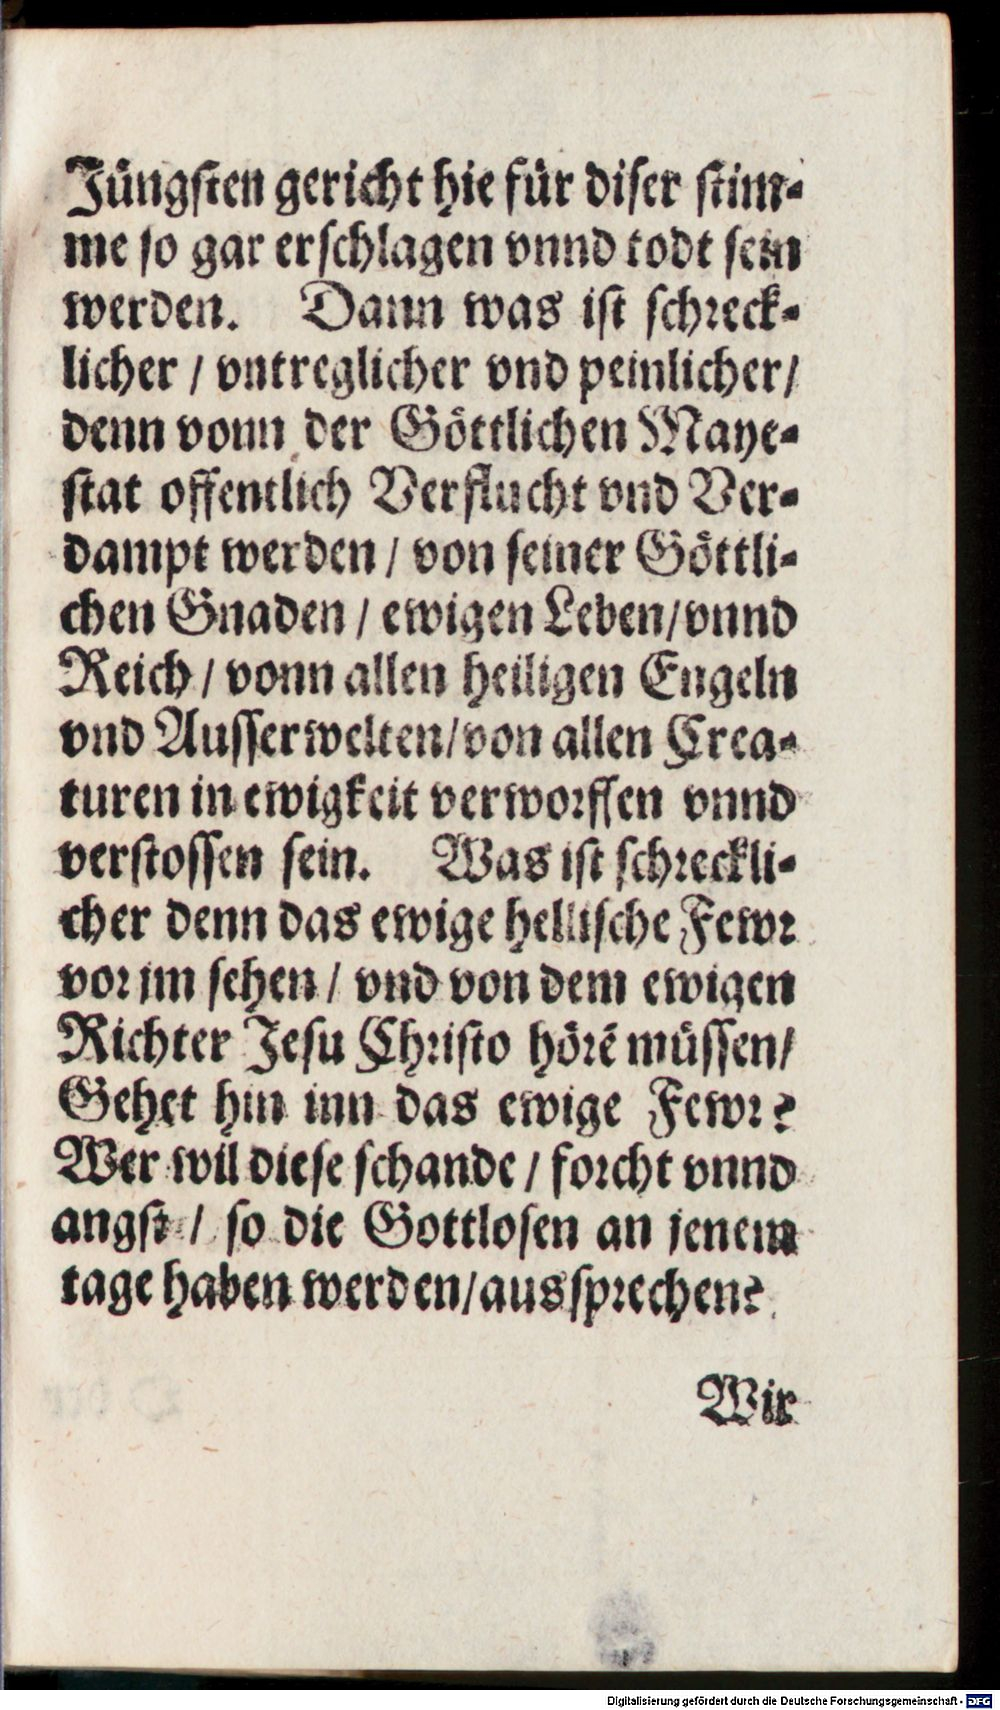 Jüngsten gericht hie für diser stim-
me so gar erschlagen vnnd todt sein
werden. Dann was ist schreck-
licher / vntreglicher vnd peinlicher/
denn vonn der Göttlichen Maye-
stat offentlich Verflucht vnd Ver-
dampt werden / von seiner Göttli-
chen Gnaden / ewigen Leben/vnnd
Reich / vonn allen heiligen Engeln
vnd Ausserwelten/von allen Crea-
turen in ewigkeit verworffen vnnd
verstossen sein. Was ist schreckli-
cher denn das ewige hellische Fewr
vor jm sehen / vnd von dem ewigen
Richter Jesu Christo hörẽ müssen/
Gehet hin inn das ewige Fewr?
Wer wil diese schande / forcht vnnd
angst / so die Gottlosen an jenem
tage haben werden/aussprechen?
Wir
Digitalisierung gefördert durch die Deutsche Forschungsgemeinschaft - DFG